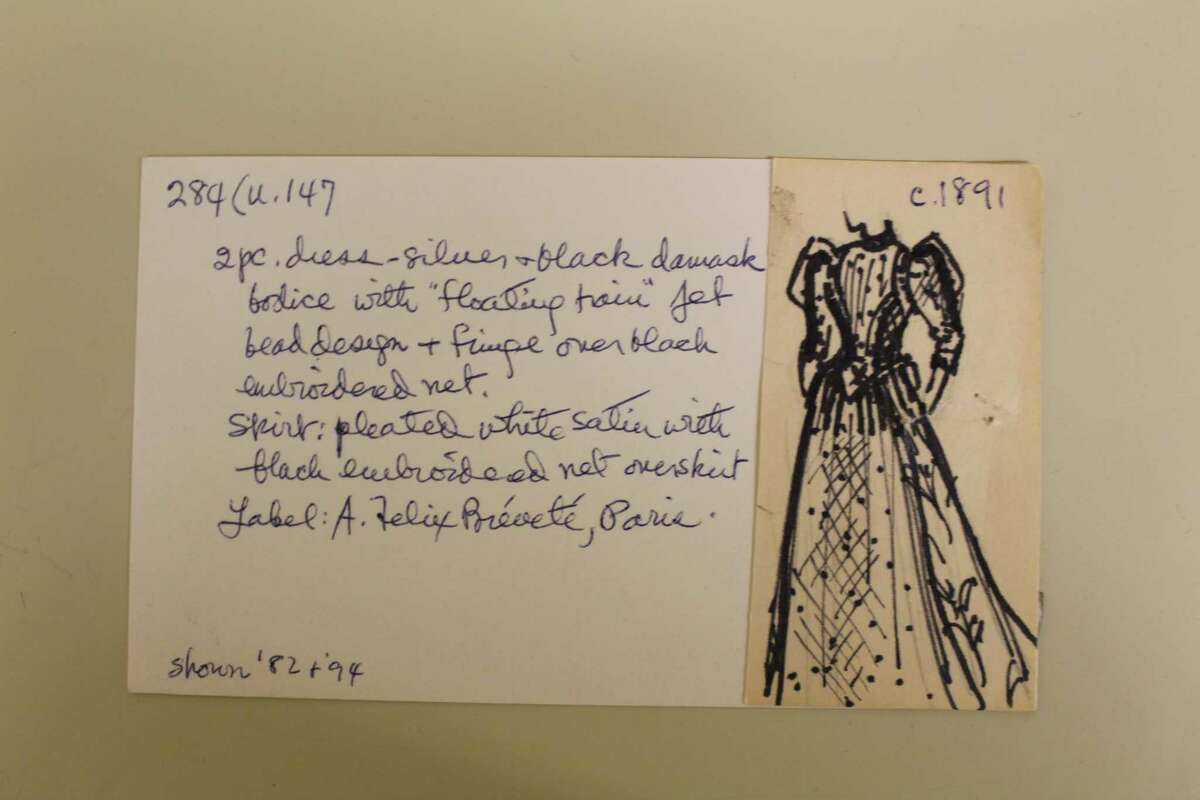 284(u.147
c.1891
2pc. dress - silver + black damask
bodice with "floating train" Jet
bead design + fringe over black
embroidered net.
Skirt: pleated white satin with
black embroidered net overskirt
Label: A. Felix Bréveté, Paris.
shown '82 + '94